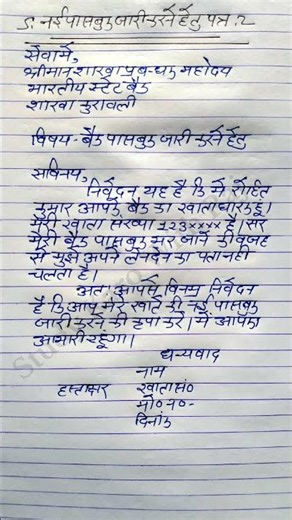 S. नई पासबुक जारी करने हेतु पत्र :2
सेवा में,
श्रीमान शाखा प्रबन्धक महोदय
भारतीय स्टेट बैंक
शाखा कुरावली
विषय- बैंक पासबुक जारी करने हेतु
सविनय,
निवेदन यह है कि मैं रोहित
कुमार आपके बैंक का खाताधारक हूं।
मेरी खाता संख्या 123×××× है। सर
मेरी बैंक पासबुक भर जाने की वजह
से मुझे अपने लेनदेन का पता नहीं
चलता है।
अतः आपसे विनम्र निवेदन
है कि आप मेरे खाते की नई पासबुक
जारी करने की कृपा करें। मैं आपका
आभारी रहूंगा।
धन्यवाद
नाम
हस्ताक्षर खाता सं०
मो० न०-
दिनांक